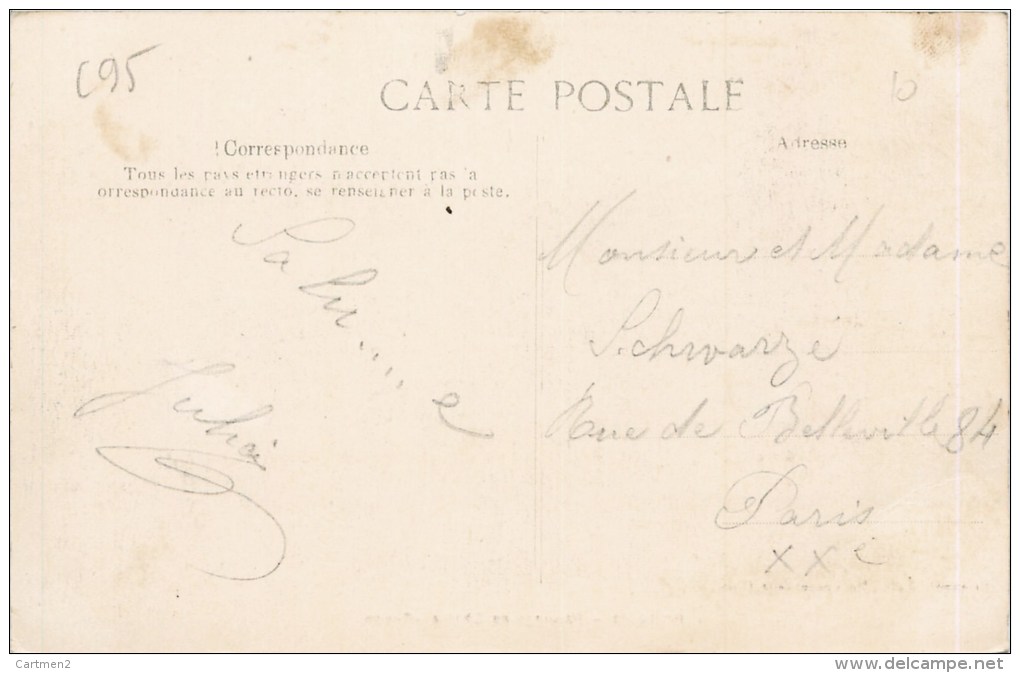 C95
b
CARTE POSTALE
Correspondance
Tous les pays etrangers n'acceptent pas la
orrespondance au recto, se renseigner à la poste.
Adresse
Salu.....e
Julia
Monsieur et Madame
Schwarze
Rue de Belleville 84
Paris
XXe
Cartmen2
www.delcampe.net